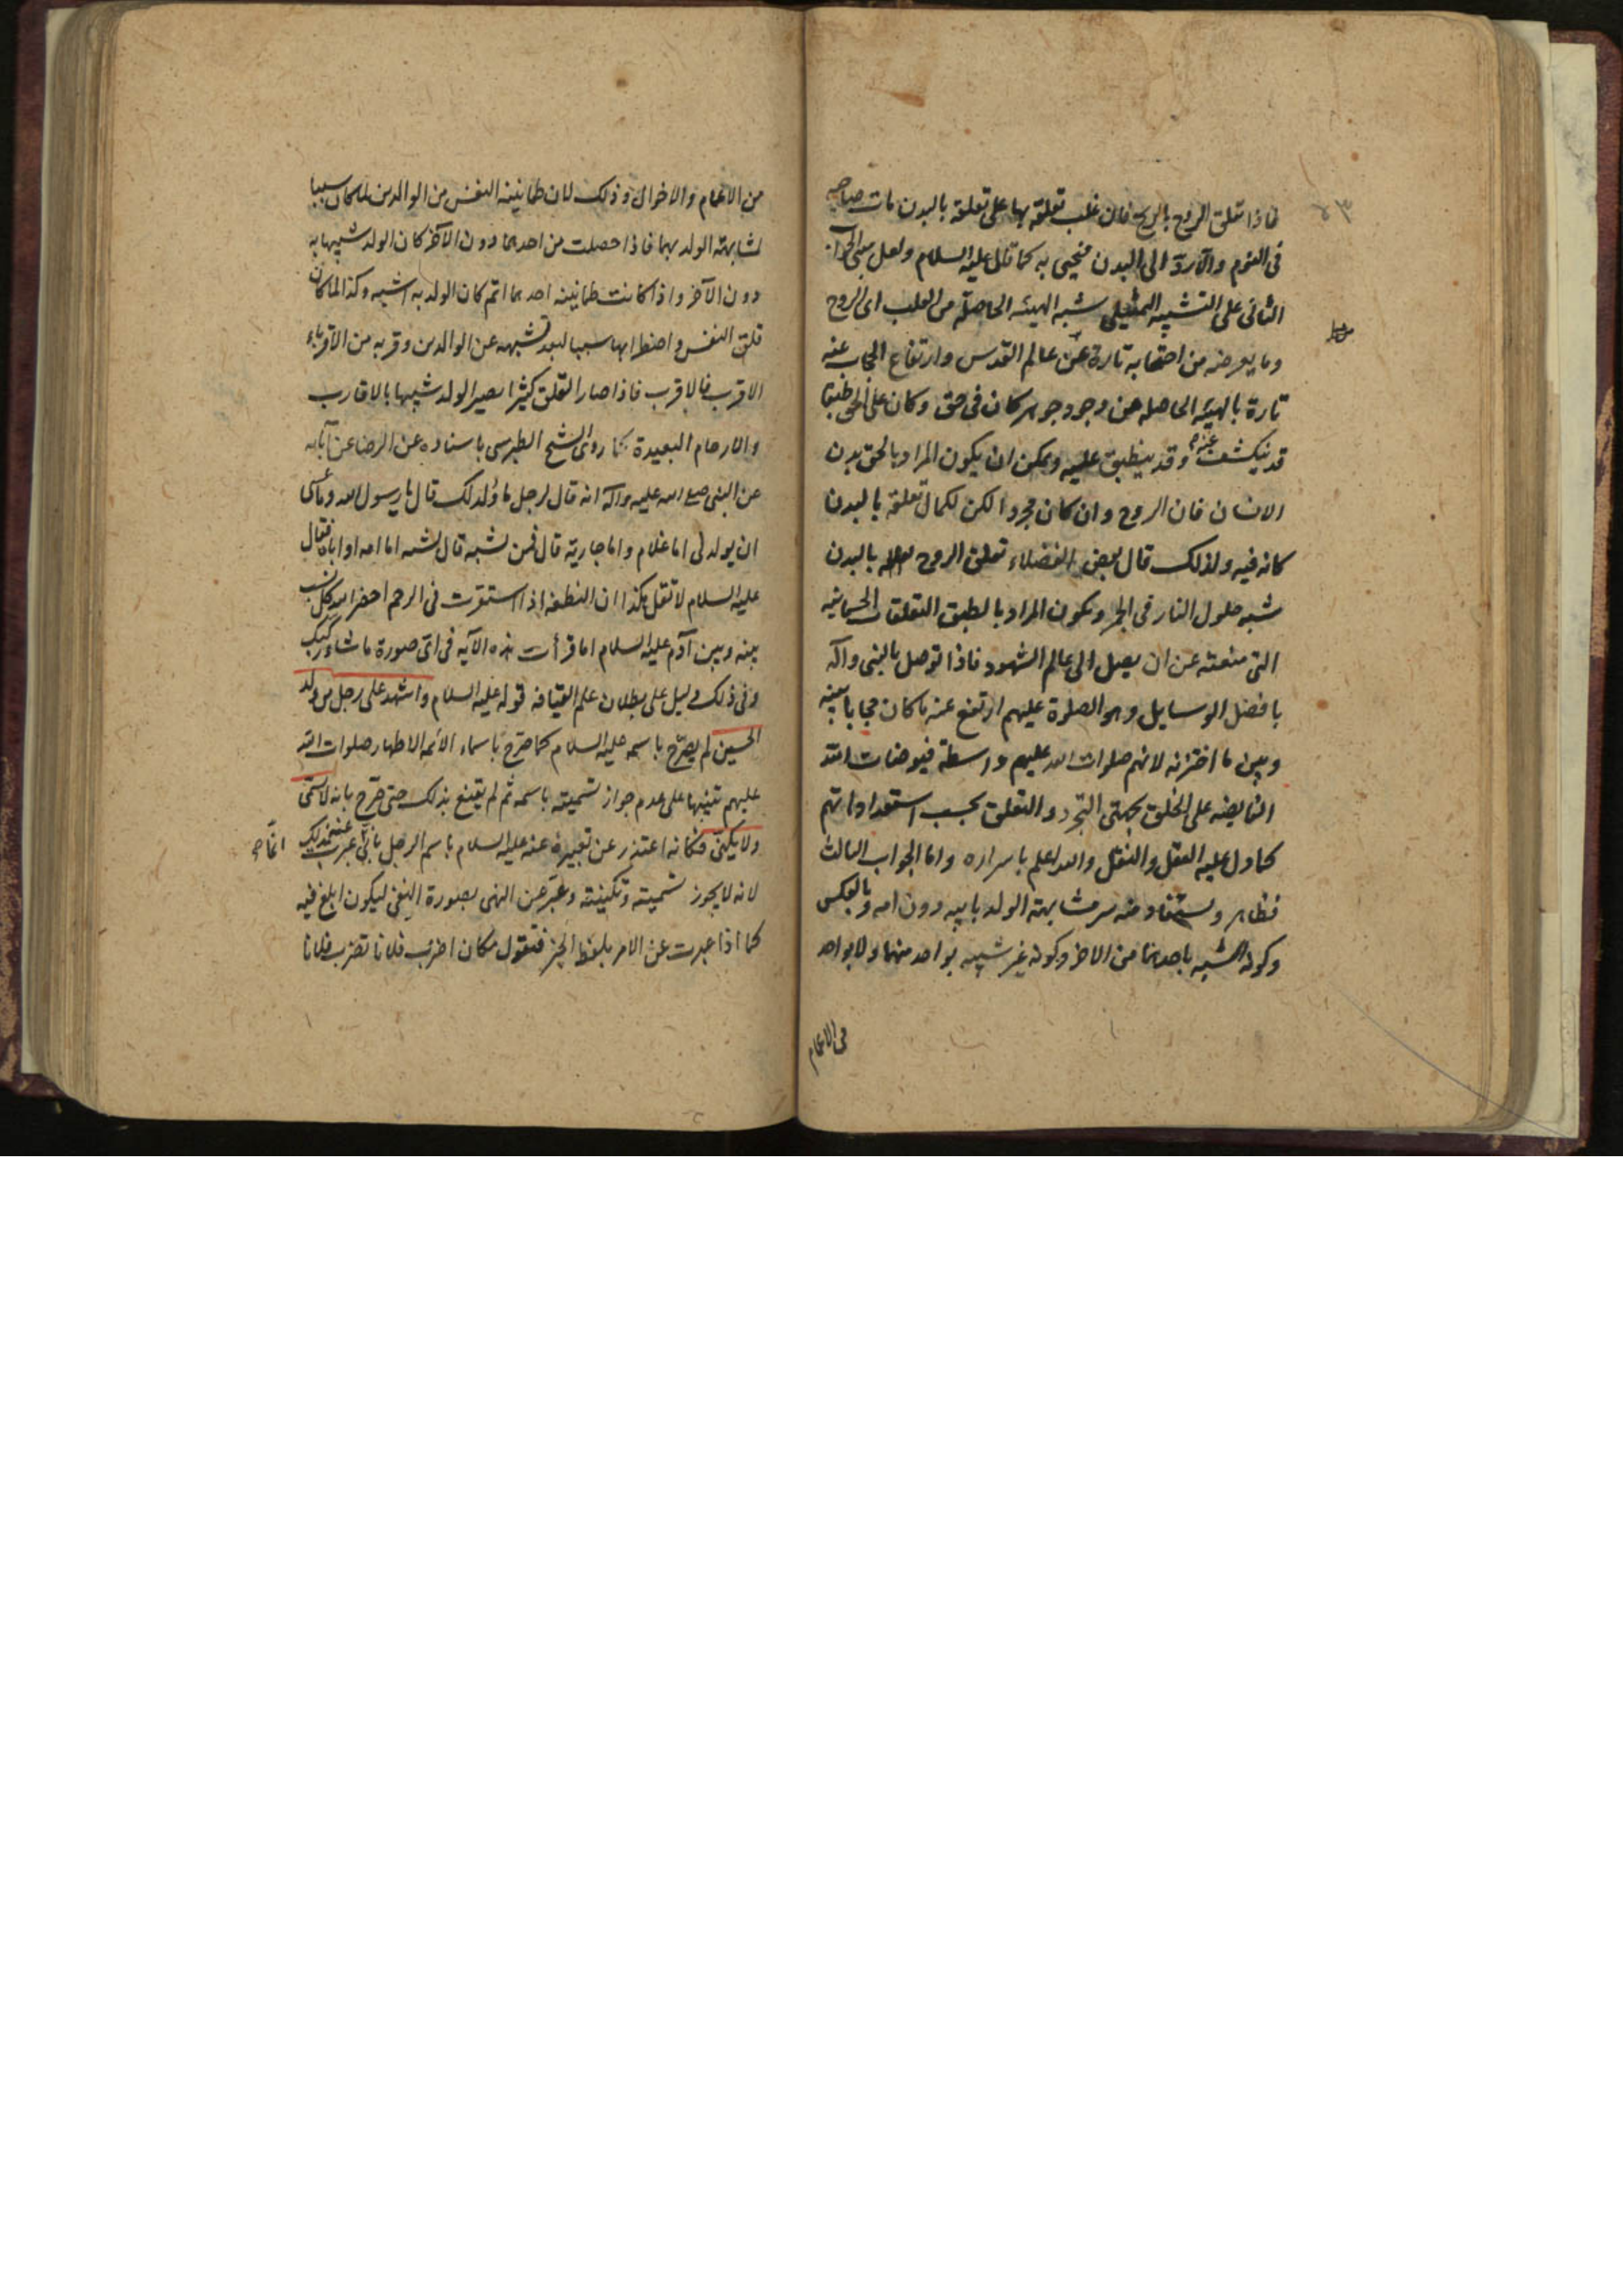 ٢٣
فاذا تعلق الروح بالريح فان غلب تعلقه بها على تعلقه بالبدن مات صاحبه
فى النوم والا رد الى البدن فيحيى به كما قال عليه السلام ولعل مبنى الجواب
الثانى على التشبيه التمثيلى شبه الهيئه الحاصلة من القلب اى الروح
وما يعرضه من احتجابه تارة عن عالم القدس وارتفاع الحجاب عنه
تارة بالهيئه الحاصله من وجود جوهر كان فى حق وكان على الحق طبقا
قد ينكشف عنه وقد ينطبق عليه ويمكن ان يكون المراد بالحق بدن
الانسان فان الروح وان كان مجردا لكن لكمال تعلقه بالبدن
كانه فيه ولذلك قال بعض الفضلاء تعلق الروح بالبدن
شبه حلول النار فى الجمر ويكون المراد بالطبق التعلقات الجسمانيه
التى منعته عن ان يصل الى عالم الشهود فاذا توصل بالنبى واله
بافضل الوسايل وهو الصلوة عليهم ارتفع عنه ما كان حجابا بينه
وبين ما اختزنه لانهم صلوات الله عليهم واسطة فيوضات الله
الفايضه على الخلق بجهتى التجرد والتعلق بحسب استعداداتهم
كما دل عليه العقل والنقل والله اعلم باسراره واما الجواب الثالث
فظاهر ويستفاد منه سر مشابهة الولد بابيه دون امه وبالعكس
وكونه اشبه باحدهما من الاخر وكونه غير شبيه بواحد منهما ولا بواحد
من الاعمام
من الاعمام والاخوال وذلك لان طمانينه النفس من الوالدين لما كان سببا
لمشابهة الولد بهما فاذا حصلت من احدهما دون الآخر كان الولد شبيها به
دون الآخر واذا كانت طمانينه احدهما اتم كان الولد به اشبه وكذا لما كان
قلق النفس واضطرابها سببا لبعد تشبهه عن الوالدين وقربه من الاقرباء
الاقرب فالاقرب فاذا صار القلق كثيرا يصير الولد شبيها بالاقارب
والارحام البعيدة كما روى الشيخ الطبرسى باسناده عن الرضا عن آبائه
عن النبى صلى الله عليه وآله انه قال لرجل ما ولد لك قال يا رسول الله وما عسى
ان يولد لى اما غلام واما جارية قال فمن يشبه قال يشبه اما امه او اباه فقال
عليه السلام لا تقل هكذا ان النطفه اذا استقرت فى الرحم احضر الله كل نسب
بينه وبين آدم عليه السلام اما قرأت هذه الآيه فى اى صورة ما شاء ركبك
وفى ذلك دليل على بطلان علم القيافه قوله عليه السلام واشهد على رجل من ولد
الحسين لم يصرح باسمه عليه السلام كما صرح باسماء الائمه الاطهار صلوات الله
عليهم تنبيها على عدم جواز تسميته باسمه ثم لم يقنع بذلك حتى صرح بانه لا يسمى
ولا يكنى فكانه اعتذر عن تعبيره عنه عليه السلام باسم الرجل بانى عبرت عنه بذلك
انما
لانه لا يجوز تسميته وتكنيته وعبر عن النهى بصورة النفى ليكون ابلغ فيه
كما اذا عبرت عن الامر بلفظ الخبر فتقول مكان اضرب فلانا تضرب فلانا